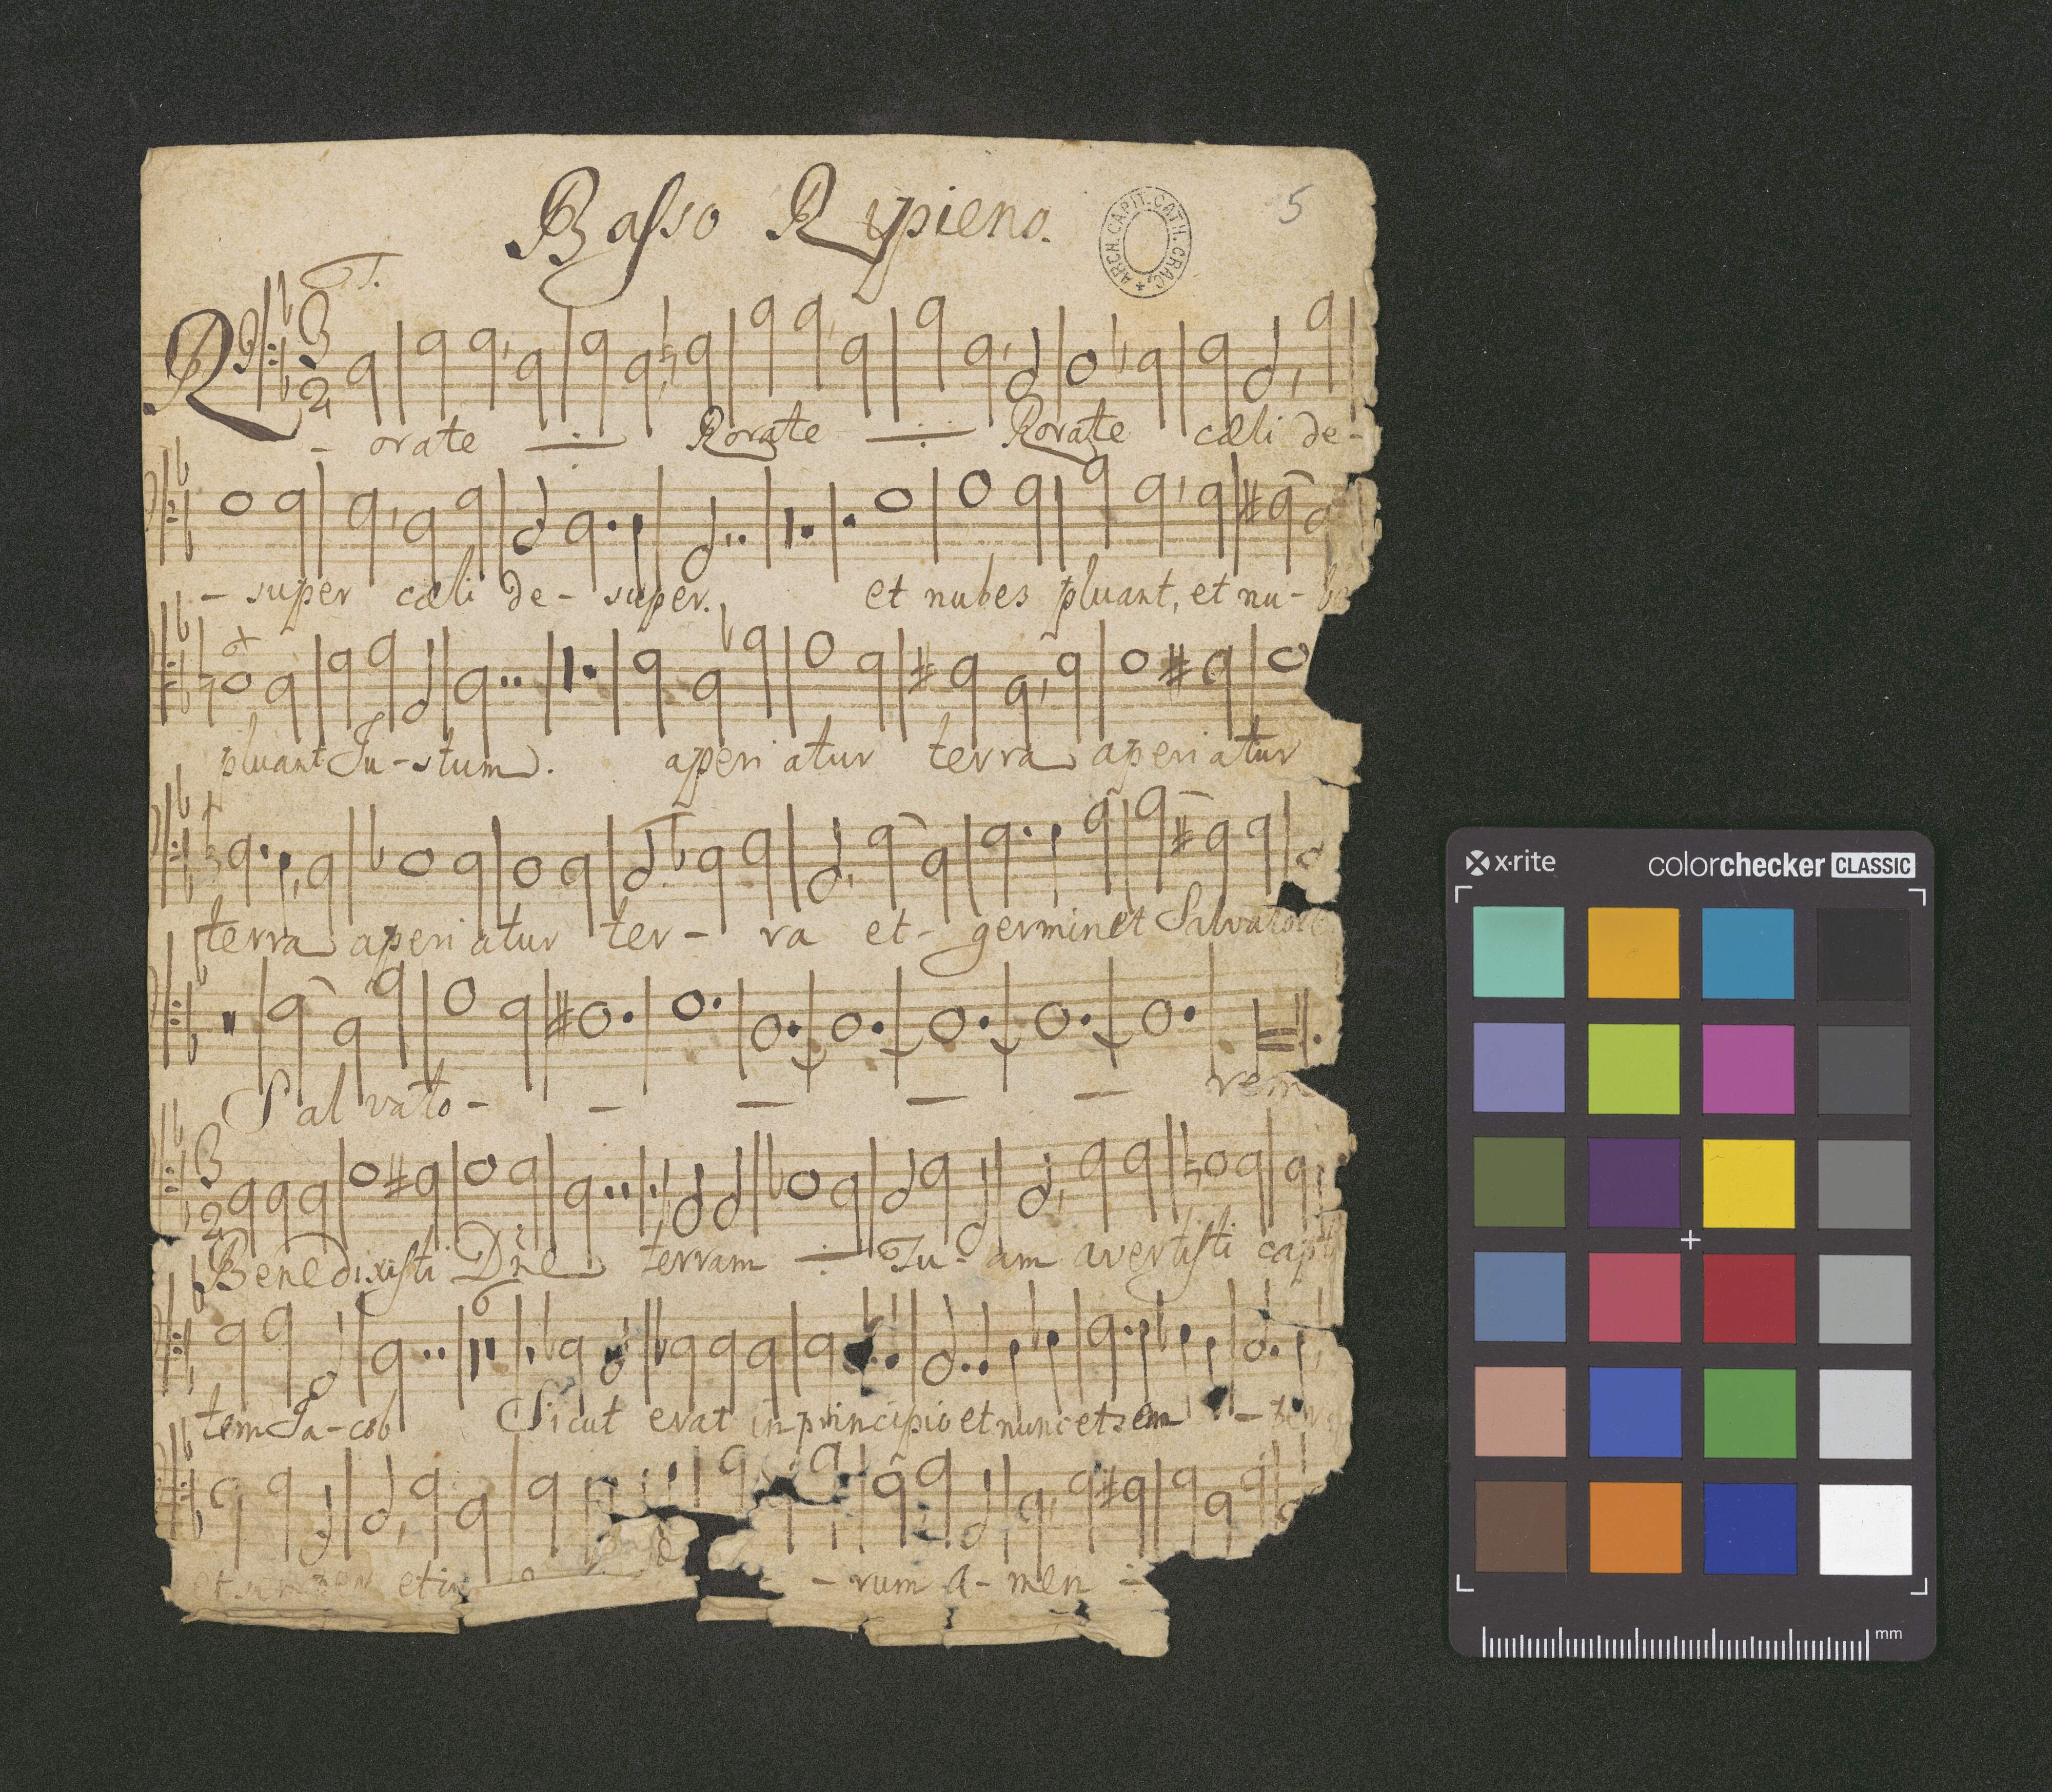 Basso Rypieno.
ARCH. CAPIT. CATH. CRAC.
5
T.
R
- orate Rorate Rorate cæli de-
- super cæli de- super. et nubes pluant, et nu-
pluant Ju-stum. aperiatur terra aperiatur
terra aperiatur ter- ra et- germinet Salvatore
Salvato- - - - - rem
Benedixisti Dñe terram Tu- am avertisti capti
6
tem Ja-cob Sicut erat in principio et nunc et sem -
et semper et in - rum A- men
x-rite
colorchecker CLASSIC
mm